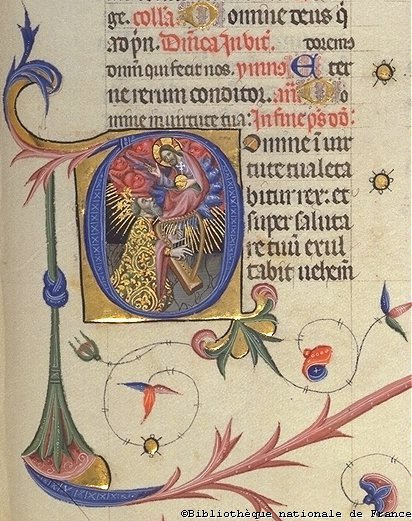 ge. colla Domine deus q̄
ad pn̄. Dn̄ica doremus
dom̄ qui fecit nos. ymnus Eter
ne rerum conditor. an̄ Do
mine in uirtute tua: In fine ps̄
Domine in uir
tute tua leta
bitur rex: et
super saluta
re tuū exul
tabit uehem
©Bibliothèque nationale de France